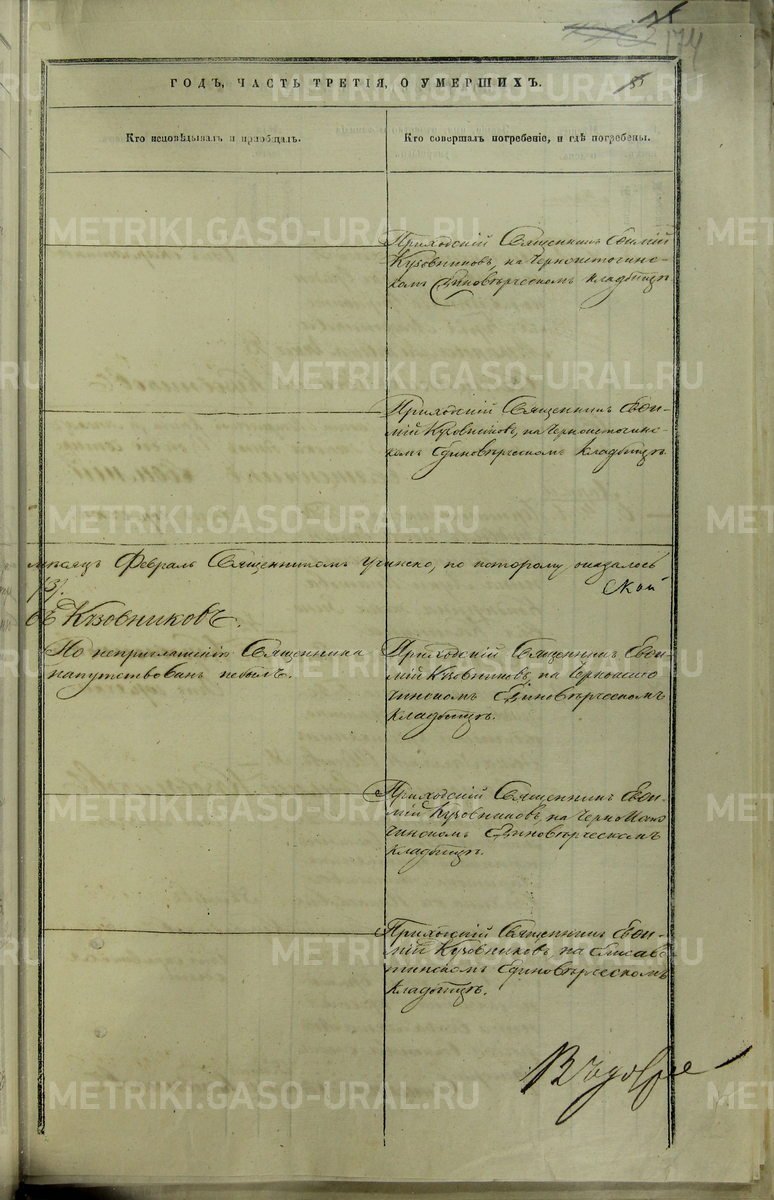 174
ГОДЪ, ЧАСТЬ ТРЕТІЯ, О УМЕРШИХЪ.
Кто исповѣдывалъ и пріобщалъ.
Кто совершалъ погребеніе, и гдѣ погребены.
Приходскій Священникъ Евѳимій
Кузовниковъ, на Черноисточин-
скомъ Единовѣрческомъ кладбищѣ.
Приходскій Священникъ Евѳи-
мій Кузовниковъ, на Черноисточин-
скомъ Единовѣрческомъ кладбищѣ.
мѣсяцъ Февраль Священникомъ учинено, по которому оказалось
Кузовниковъ.
По неприглашенію Священника
напутствованъ небылъ.
Приходскій Священникъ Евѳи-
мій Кузовниковъ, на Черноисто
чинскомъ Единовѣрческомъ
кладбищѣ.
Приходскій Священникъ Евѳи-
мій Кузовниковъ, на Черноисто
чинскомъ Единовѣрческомъ
кладбищѣ.
Приходскій Священникъ Евѳи-
мій Кузовниковъ, на Елисаве
тинскомъ Единовѣрческомъ
кладбищѣ.
METRIKI.GASO-URAL.RU